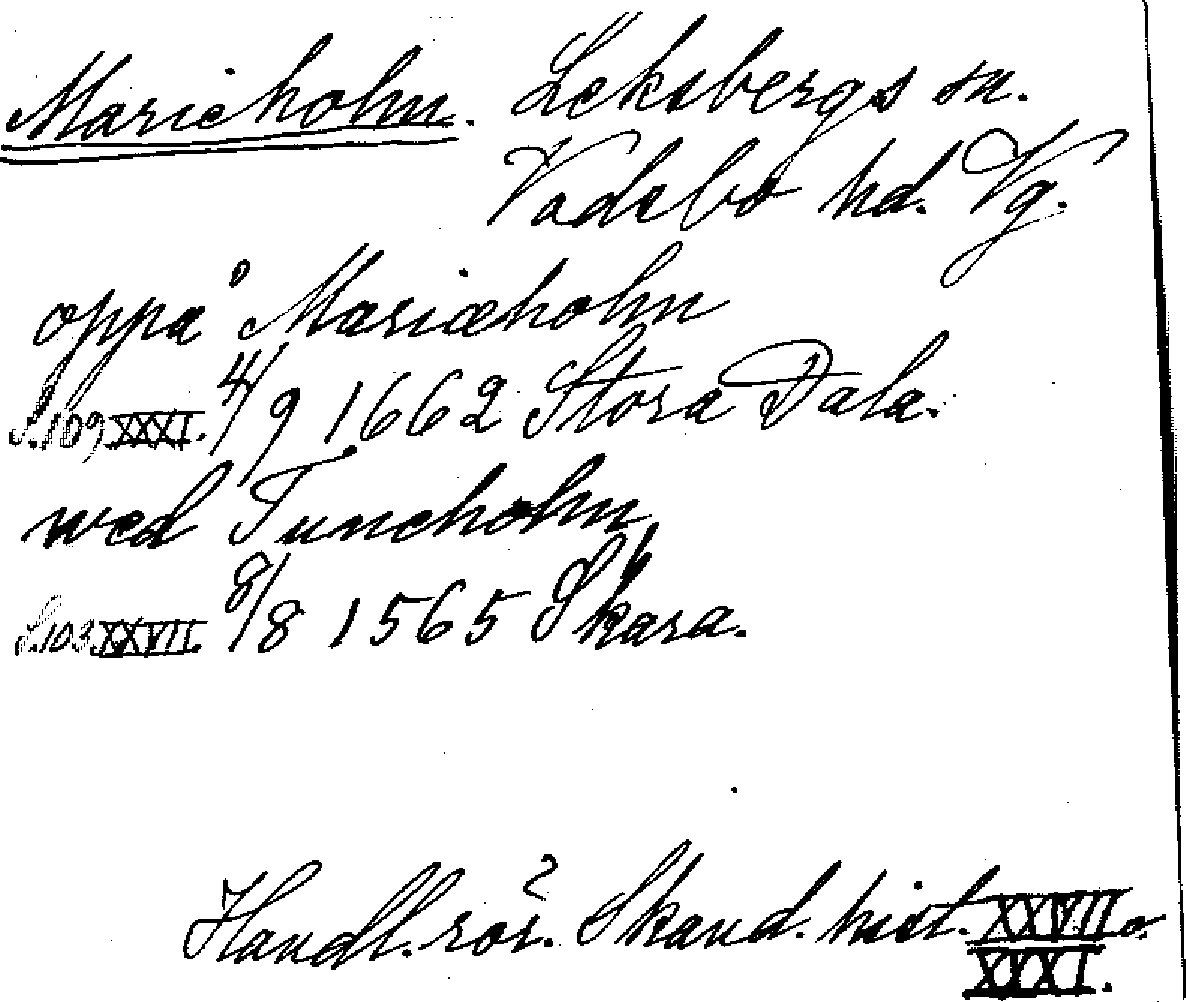 Marieholm. Leksbergs sn.
Vadsbo hd. Vg.
oppå Mariæholm
S.109 XXXI. 4/9 1662 Stora Dala.
wed Tuneholm
S.103 XXVII. 8/8 1565 Skara.
Handl. rör. Skand. hist. XXVII o.
XXXI.